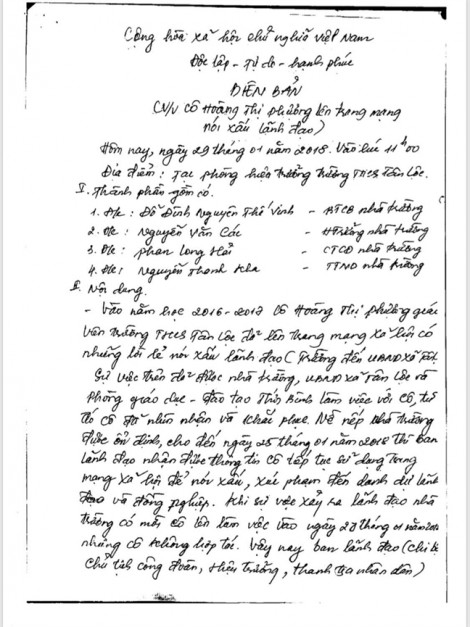 Cộng hòa xã hội chủ nghĩa Việt Nam
Độc lập - Tự do - Hạnh phúc
BIÊN BẢN
(V/v cô Hoàng Thị Phương lên trang mạng
nói xấu lãnh đạo)
Hôm nay, ngày 29 tháng 01 năm 2018. Vào lúc 11h00
Địa điểm: Tại phòng hiệu trưởng trường THCS Tân Lộc.
I. Thành phần gồm có.
1. Đ/c: Đỗ Đình Nguyên Thế Vinh - BTCB nhà trường
2. Đ/c: Nguyễn Văn Các - H trưởng nhà trường
3. Đ/c: Phan Long Hải - CTCĐ nhà trường
4. Đ/c: Nguyễn Thanh - TTND nhà trường
II. Nội dung.
- Vào năm học 2016-2017 cô Hoàng Thị Phương giáo
viên trường THCS Tân Lộc đã lên trang mạng xã hội có
những lời lẽ nói xấu lãnh đạo (Trường đến UBND xã
Sự việc trên đã được nhà trường, UBND xã Tân Lộc và
Phòng giáo dục - đào tạo làm việc với cô, từ
đó cô đã nhìn nhận và khắc phục. Nề nếp nhà trường
được ổn định, cho đến ngày 25 tháng 01 năm 2018 thì ban
lãnh đạo nhận được thông tin cô tiếp tục sử dụng trang
mạng xã hội để nói xấu, xúc phạm đến danh dự lãnh
đạo và đồng nghiệp. Khi sự việc xảy ra lãnh đạo nhà
trường có mời cô lên làm việc vào ngày tháng 01 năm
nhưng cô không hợp tác. Vậy nay ban lãnh đạo (Chi bộ
Chủ tịch công đoàn, Hiệu trưởng, thanh tra nhân dân)